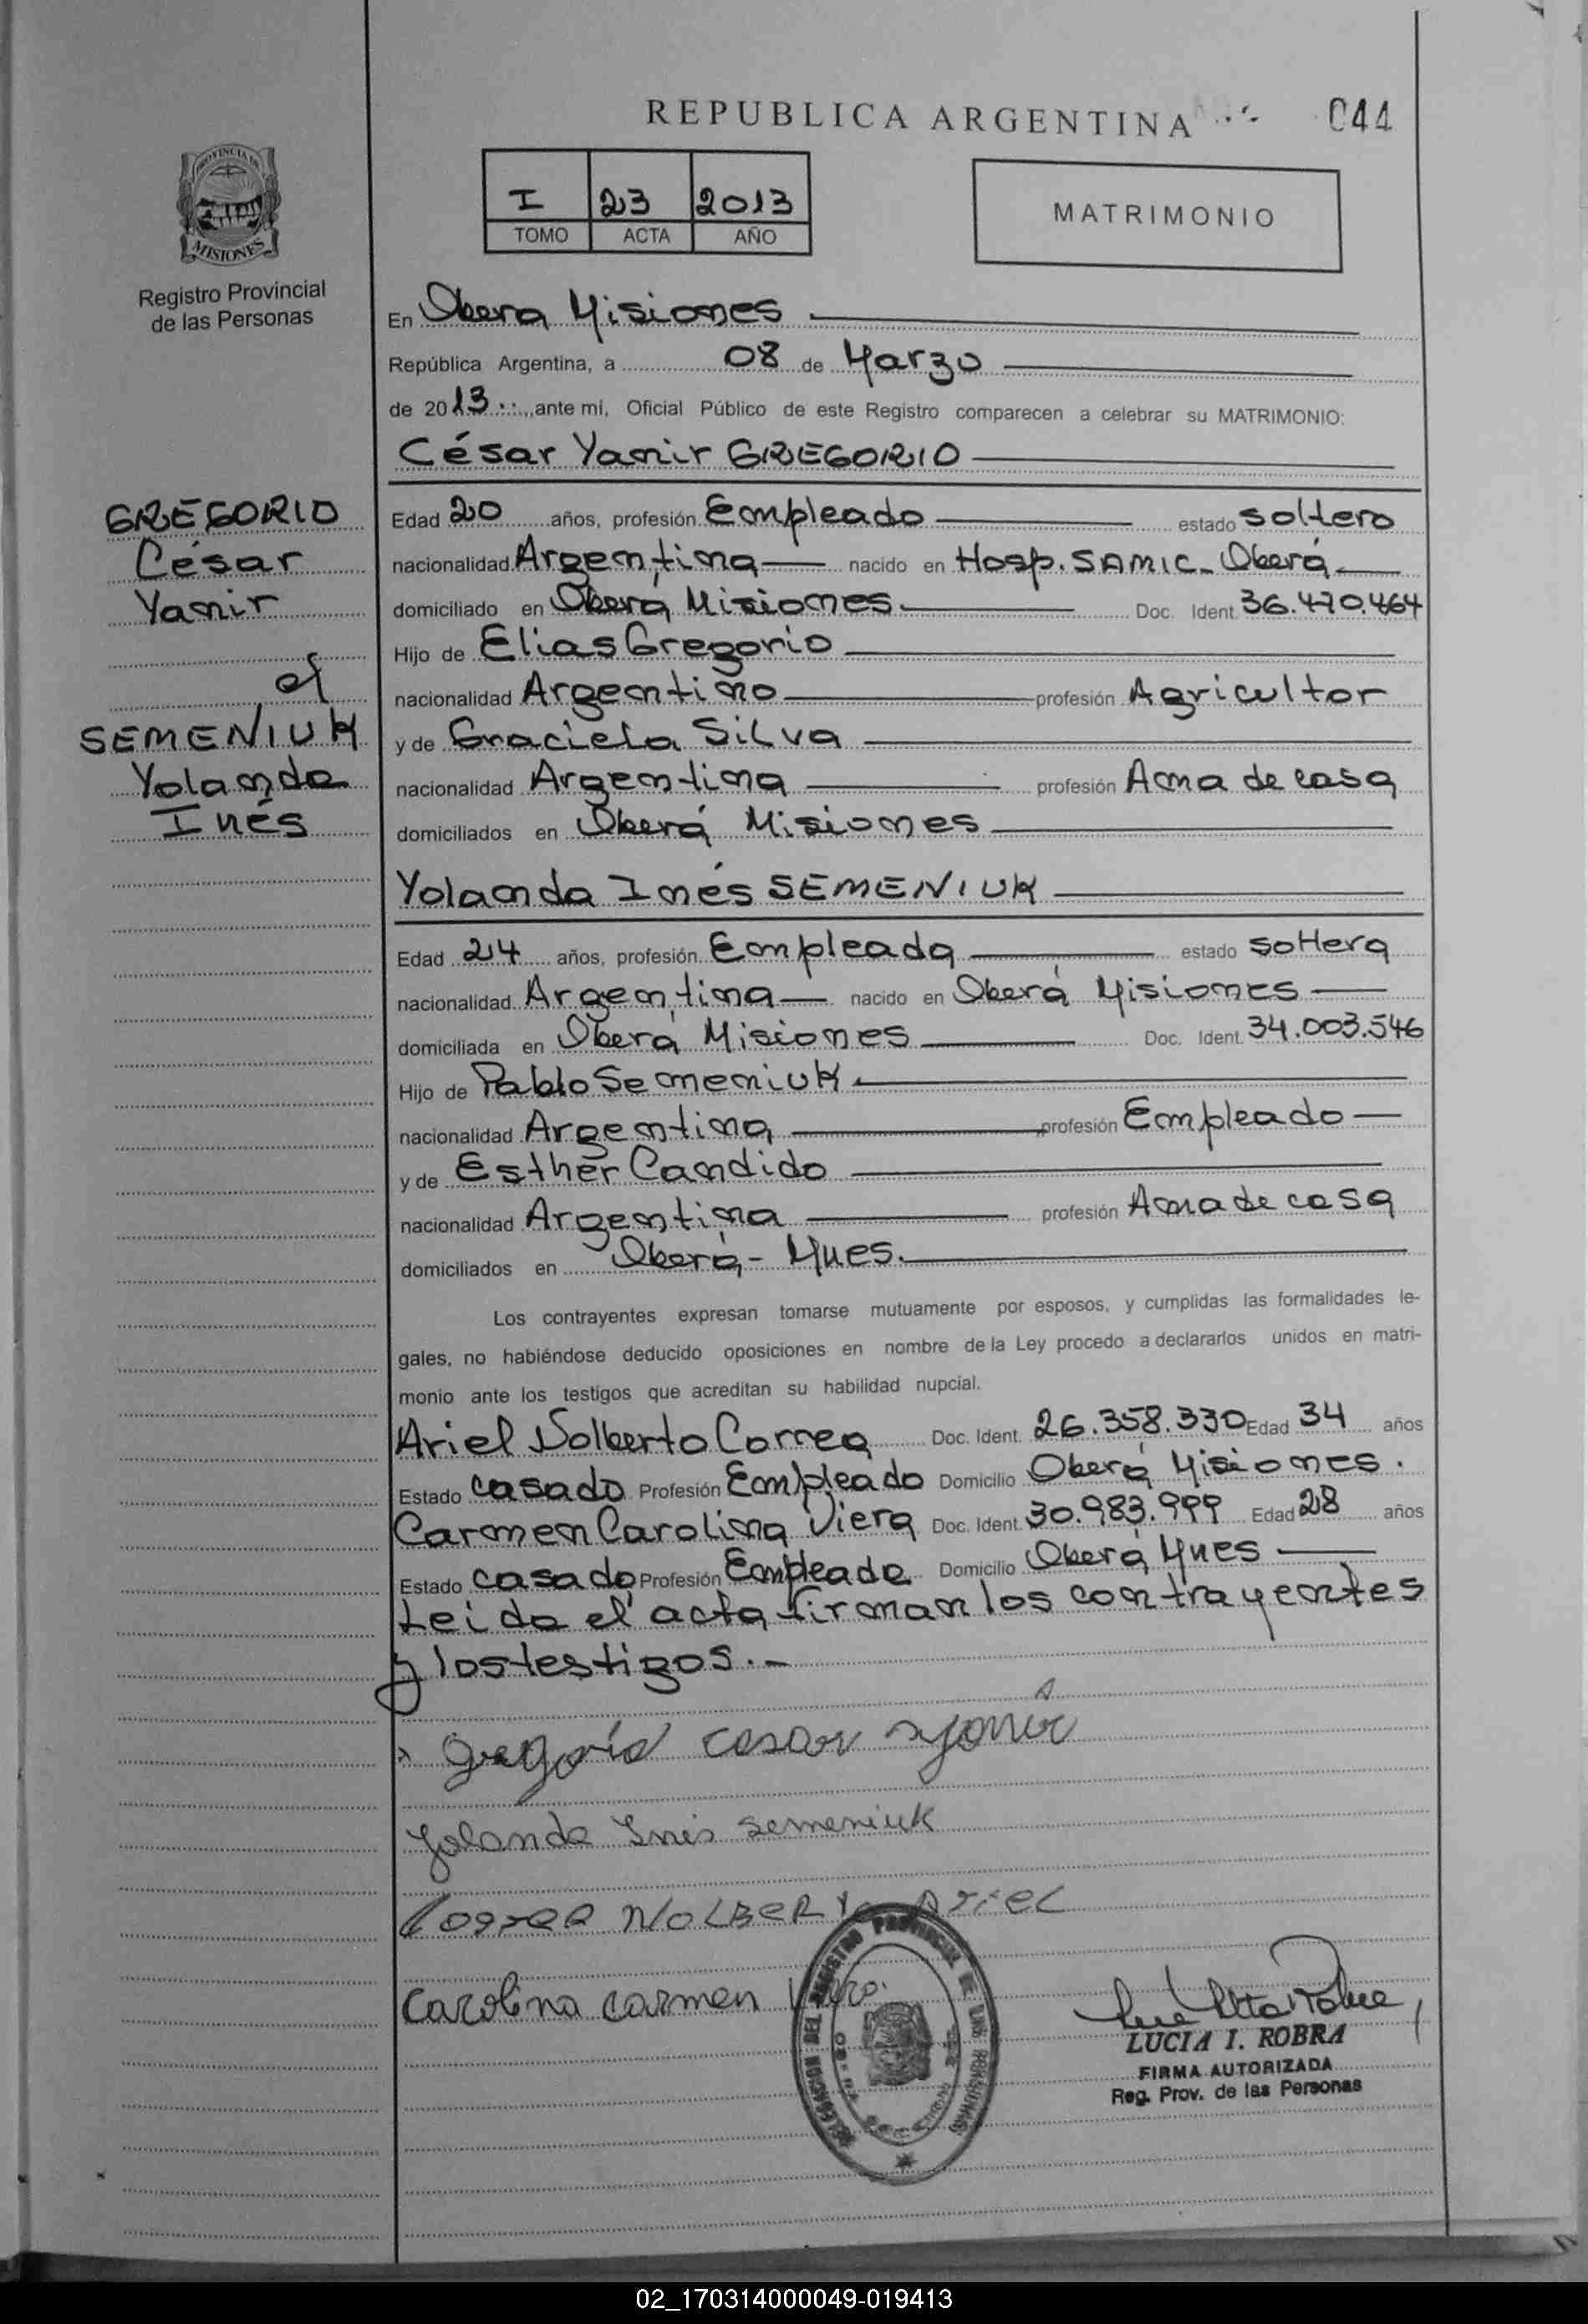 REPUBLICA ARGENTINA 044
PROVINCIA DE
MISIONES
Registro Provincial
de las Personas
I 23 2013
TOMO ACTA AÑO
MATRIMONIO
En Oberá Misiones
República Argentina, a 08 de Marzo
de 2013 ante mí, Oficial Público de este Registro comparecen a celebrar su MATRIMONIO:
César Yamir GREGORIO
GREGORIO
César
Yamir
et
SEMENIUK
Yolanda
Inés
Edad 20 años, profesión Empleado estado soltero
nacionalidad Argentina nacido en Hosp. SAMIC - Oberá
domiciliado en Oberá Misiones Doc. Ident. 36.470.464
Hijo de Elias Gregorio
nacionalidad Argentino profesión Agricultor
y de Graciela Silva
nacionalidad Argentina profesión Ama de casa
domiciliados en Oberá Misiones
Yolanda Inés SEMENIUK
Edad 24 años, profesión Empleada estado soltera
nacionalidad Argentina nacido en Oberá Misiones
domiciliada en Oberá Misiones Doc. Ident. 34.003.546
Hijo de Pablo Semeniuk
nacionalidad Argentina profesión Empleado
y de Esther Candido
nacionalidad Argentina profesión Ama de casa
domiciliados en Oberá - Mnes.
Los contrayentes expresan tomarse mutuamente por esposos, y cumplidas las formalidades le-
gales, no habiéndose deducido oposiciones en nombre de la Ley procedo a declararlos unidos en matri-
monio ante los testigos que acreditan su habilidad nupcial.
Ariel Nolberto Correa Doc. Ident. 26.358.330 Edad 34 años
Estado casado Profesión Empleado Domicilio Oberá Misiones.
Carmen Carolina Viera Doc. Ident. 30.983.999 Edad 28 años
Estado casado Profesión Empleada Domicilio Oberá Mnes
Leida el acta firman los contrayentes
y los testigos.-
Gregorio cesar yamir
Yolanda Inés Semeniuk
Correa NOLBERTO ARIEL
Carolina Carmen
DELEGACION DEL REGISTRO PROVINCIAL DE LAS PERSONAS
LUCIA I. ROBRA
FIRMA AUTORIZADA
Reg. Prov. de las Personas
02_170314000049-019413